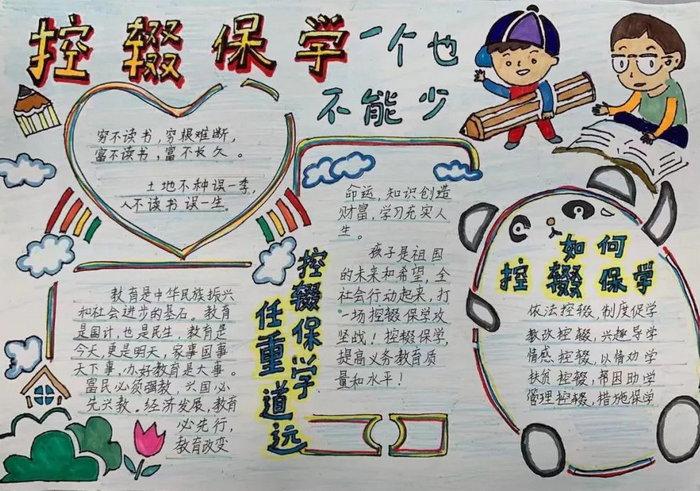 控辍保学一个也
不能少
穷不读书，穷根难断，
富不读书，富不长久。
土地不种误一季，
人不读书误一生。
教育是中华民族振兴
和社会进步的基石。教育
是国计，也是民生，教育是
今天，更是明天，家事国事
天下事，办好教育是大事。
富民必须强教，兴国必
先兴教。经济发展，教育
必先行，
教育改变
命运，知识创造
财富，学习充实人
生。
孩子是祖国
的未来和希望，全
社会行动起来，打
一场控辍保学攻
坚战！控辍保学，
提高义务教育质
量和水平！
控辍保学
任重道远
如何
控辍保学
依法控辍，制度促学
教改控辍，兴趣导学
情感控辍，以情劝学
扶贫控辍，帮困助学
管理控辍，措施保学